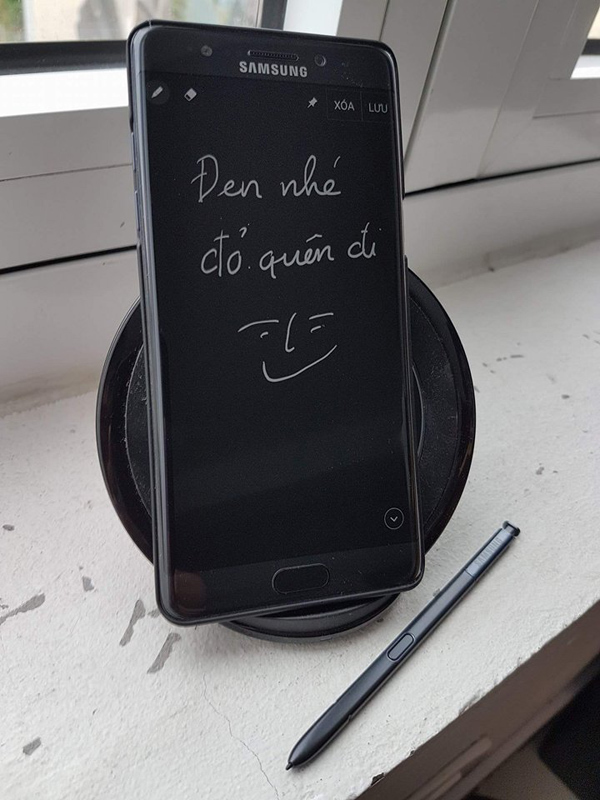 SAMSUNG
XÓA LƯU
Đen nhé
đỏ. quên đi